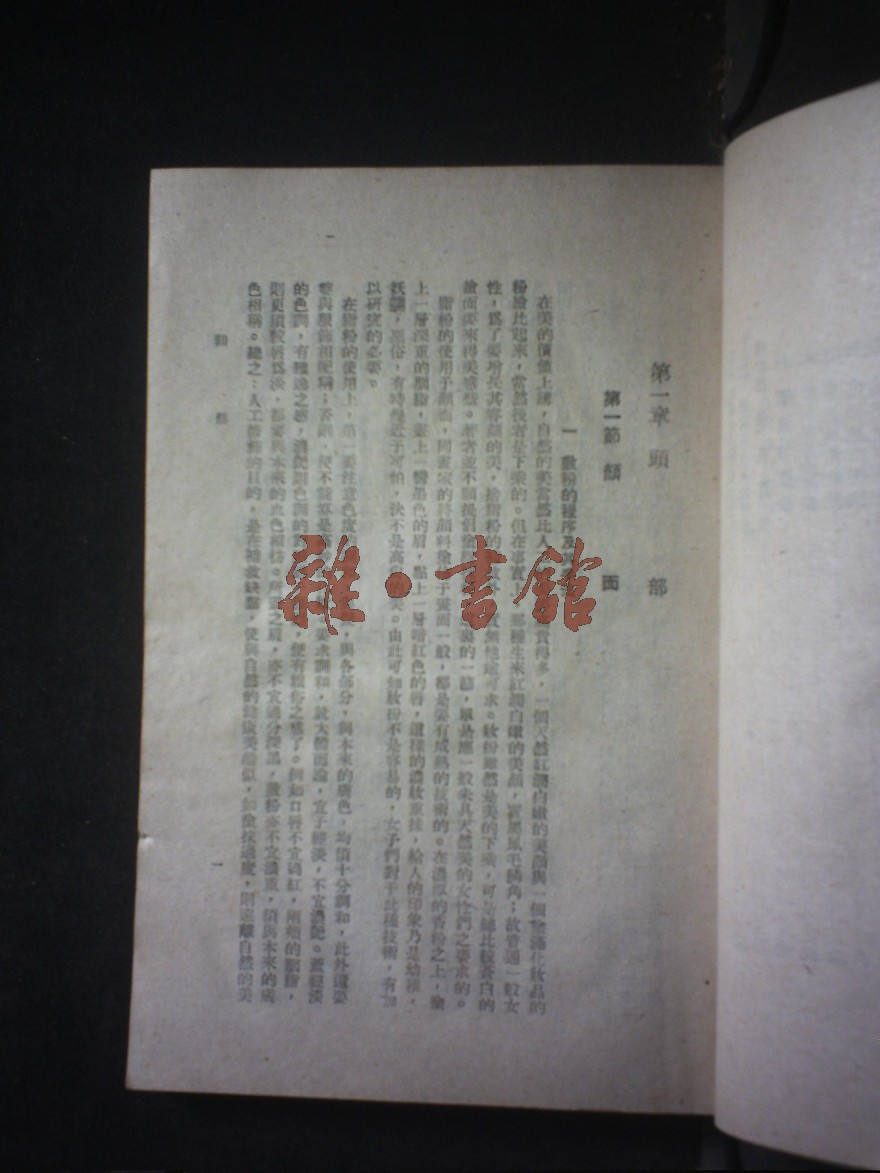 第一章 頭 部
第一節 顏 面
一 敷粉的程序及
在美的價值上講，自然的美當然比人 貴得多，一個天然紅潤白嫩的美顏與一個塗滿化妝品的
粉臉比起來，當然後者是下乘的。但在事實 那種生來紅潤白嫩的美顏，實 鳳毛麟角；故普通一般女
性，爲了要增長其容顏的美，捨脂粉的 實無他途可求。妝扮雖然是美的下乘，可 總比較蒼白的
臉面要來得美感些。著者並不願提倡塗 臭的一 ，單是應一般未具天然美的女性們之要求的。
脂粉的使用于顏面，同畫家的將顏料塗于畫面一般，都是要有成熟的技術的。在濃厚的香粉之上，塗
上一層深重的胭脂，畫上一 墨色的眉，點上一層暗紅色的唇，這樣的濃妝重抹，給人的印象乃是幼稚，
妖豔，惡俗，有時幾近于可怕，決不是高 美。由此可知妝扮不是容易的，女子們對于此種技術，有加
以研究的必要。
在脂粉的使用上，第一要注意色度的 與各部分，與本來的膚色，均須十分調和，此外還要
與服飾相配稱；否則，便不能算是 要求調和，就大體而論，宜于輕淡，不宜濃艷。蓋輕淡
的色調，有雅逸之感，濃艷的色調 便有離奇之感了。例如口唇不宜過紅，兩頰的胭脂，
則更須較唇爲淡，都要與本來的血色相稱。所畫之眉，亦不宜過分深黑，敷粉亦不宜濃重，須與本來的膚
色相稱。總之：人工修飾的目的，是在補救缺點，使與自然的健康美酷似，如塗抹過度，則遠離自然的美
頭 部 一
雜·書館